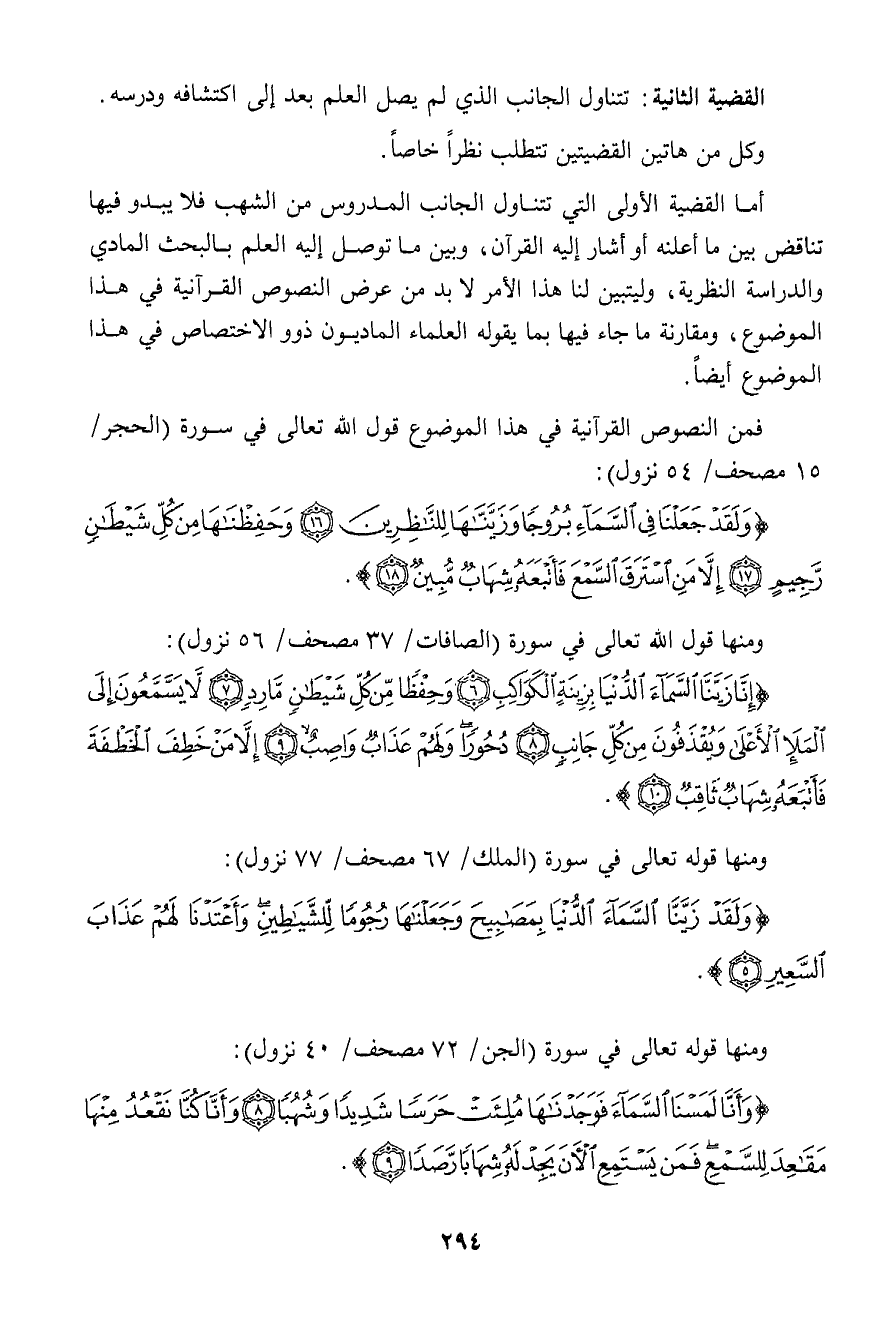 القضية الثانية: تتناول الجانب الذي لم يصل العلم بعد إلى اكتشافه ودرسه.
وكل من هاتين القضيتين تتطلب نظراً خاصاً.
أما القضية الأولى التي تتناول الجانب المدروس من الشهب فلا يبدو فيها
تناقض بين ما أعلنه أو أشار إليه القرآن، وبين ما توصل إليه العلم بالبحث المادي
والدراسة النظرية، وليتبين لنا هذا الأمر لا بد من عرض النصوص القرآنية في هذا
الموضوع، ومقارنة ما جاء فيها بما يقوله العلماء الماديون ذوو الاختصاص في هذا
الموضوع أيضاً.
فمن النصوص القرآنية في هذا الموضوع قول الله تعالى في سورة (الحجر/
١٥ مصحف/ ٥٤ نزول):
﴿وَلَقَدْ جَعَلْنَا فِى ٱلسَّمَآءِ بُرُوجًا وَزَيَّنَّٰهَا لِلنَّٰظِرِينَ ١٦ وَحَفِظْنَٰهَا مِن كُلِّ شَيْطَٰنٍ
رَّجِيمٍ ١٧ إِلَّا مَنِ ٱسْتَرَقَ ٱلسَّمْعَ فَأَتْبَعَهُۥ شِهَابٌ مُّبِينٌ ١٨﴾.
ومنها قول الله تعالى في سورة (الصافات/ ٣٧ مصحف/ ٥٦ نزول):
﴿إِنَّا زَيَّنَّا ٱلسَّمَآءَ ٱلدُّنْيَا بِزِينَةٍ ٱلْكَوَاكِبِ ٦ وَحِفْظًا مِّن كُلِّ شَيْطَٰنٍ مَّارِدٍ ٧ لَّا يَسَّمَّعُونَ إِلَى
ٱلْمَلَإِ ٱلْأَعْلَىٰ وَيُقْذَفُونَ مِن كُلِّ جَانِبٍ ٨ دُحُورًا ۖ وَلَهُمْ عَذَابٌ وَاصِبٌ ٩ إِلَّا مَنْ خَطِفَ ٱلْخَطْفَةَ
فَأَتْبَعَهُۥ شِهَابٌ ثَاقِبٌ ١٠﴾.
ومنها قوله تعالى في سورة (الملك/ ٦٧ مصحف/ ٧٧ نزول):
﴿وَلَقَدْ زَيَّنَّا ٱلسَّمَآءَ ٱلدُّنْيَا بِمَصَٰبِيحَ وَجَعَلْنَٰهَا رُجُومًا لِّلشَّيَٰطِينِ ۖ وَأَعْتَدْنَا لَهُمْ عَذَابَ
ٱلسَّعِيرِ ٥﴾.
ومنها قوله تعالى في سورة (الجن/ ٧٢ مصحف/ ٤٠ نزول):
﴿وَأَنَّا لَمَسْنَا ٱلسَّمَآءَ فَوَجَدْنَٰهَا مُلِئَتْ حَرَسًا شَدِيدًا وَشُهُبًا ٨ وَأَنَّا كُنَّا نَقْعُدُ مِنْهَا
مَقَٰعِدَ لِلسَّمْعِ ۖ فَمَن يَسْتَمِعِ ٱلْأَنَ يَجِدْ لَهُۥ شِهَابًا رَّصَدًا ٩﴾.
٢٩٤